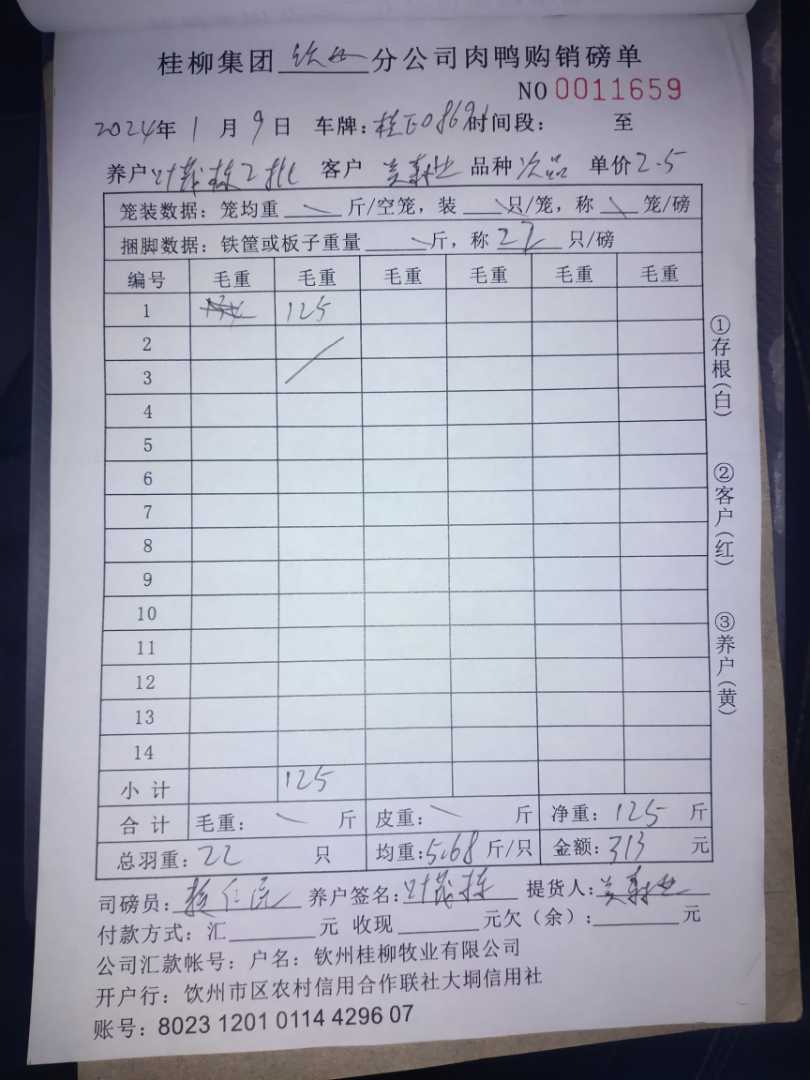 桂柳集团 钦州 分公司肉鸭购销磅单
NO 0011659
2024年 1 月 9 日 车牌: 时间段: 至
养户 叶茂栋2批 客户 品种 次品 单价 2.5
笼装数据：笼均重 斤/空笼，装 只/笼，称 笼/磅
捆脚数据：铁筐或板子重量 斤，称 22 只/磅
编号 毛重 毛重 毛重 毛重 毛重 毛重
1 125
2
3
4
5
6
7
8
9
10
11
12
13
14
小 计 125
合 计 毛重: 斤 皮重: 斤 净重: 125 斤
总羽重: 22 只 均重: 5.68 斤/只 金额: 313 元
司磅员: 养户签名: 叶茂栋 提货人:
付款方式: 汇 元 收现 元欠（余）: 元
公司汇款帐号：户名：钦州桂柳牧业有限公司
开户行：饮州市区农村信用合作联社大垌信用社
账号：8023 1201 0114 4296 07
①存根(白)
②客户(红)
③养户(黄)